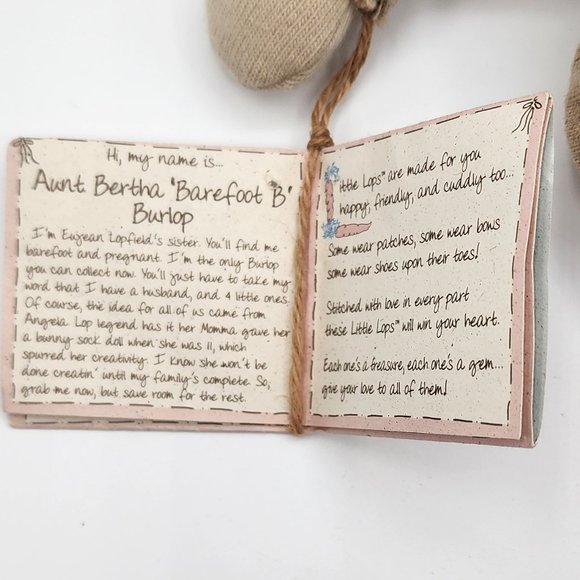 Hi, my name is...
Aunt Bertha 'Barefoot B'
Burlop
I'm Eugean Lopfield's sister. You'll find me
barefoot and pregnant. I'm the only Burlop
you can collect now. You'll just have to take my
word that I have a husband, and 4 little ones.
Of course, the idea for all of us came from
Angela. Lop legend has it her Momma gave her
a bunny sock doll when she was 11, which
spurred her creativity. I know she won't be
done creatin' until my family's complete. So,
grab me now, but save room for the rest.
Little Lops™ are made for you
happy, friendly, and cuddly too...
Some wear patches, some wear bows
some wear shoes upon their toes!
Stitched with love in every part
these Little Lops™ will win your heart.
Each one's a treasure, each one's a gem...
give your love to all of them!